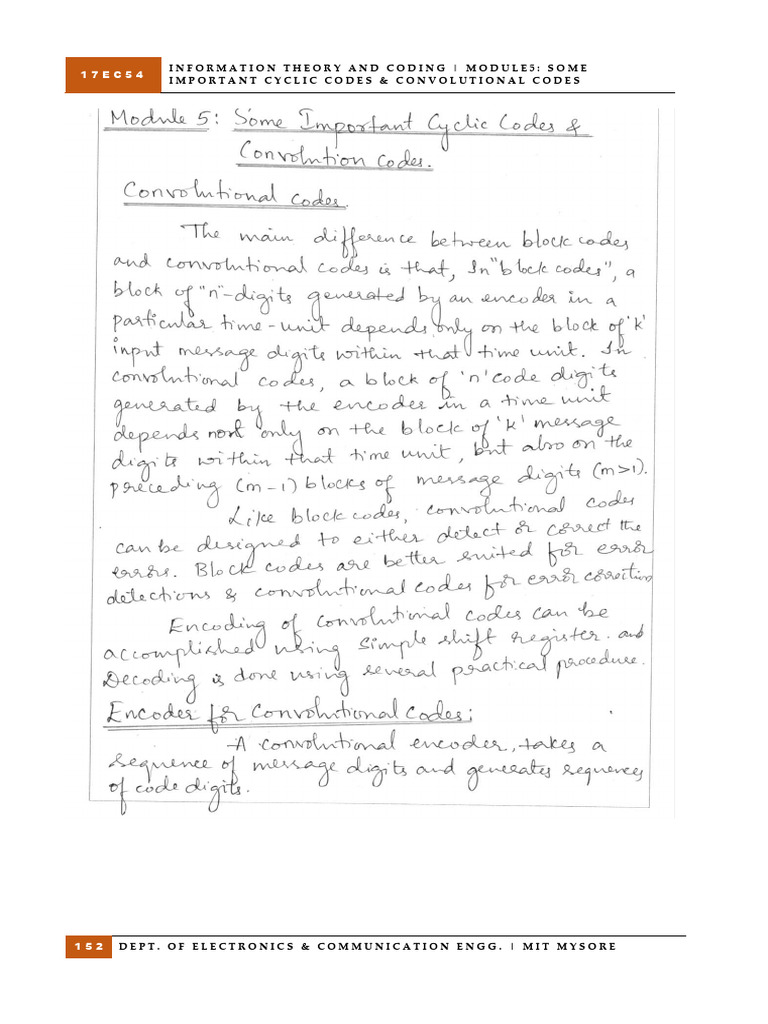 17EC54
INFORMATION THEORY AND CODING | MODULE5: SOME
IMPORTANT CYCLIC CODES & CONVOLUTIONAL CODES
Module 5: Some Important Cyclic Codes &
Convolution Codes.
Convolutional codes.
The main difference between block codes
and convolutional codes is that, In "block codes", a
block of "n"-digits generated by an encoder in a
particular time-unit depends only on the block of 'k'
input message digits within that time unit. In
convolutional codes, a block of 'n' code digits
generated by the encoder in a time unit
depends not only on the block of 'k' message
digits within that time unit, but also on the
preceding (m-1) blocks of message digits (m>1).
Like block codes, convolutional codes
can be designed to either detect or correct the
errors. Block codes are better suited for error
detections & convolutional codes for error correction
Encoding of convolutional codes can be
accomplished using simple shift register. and
Decoding is done using several practical procedure.
Encoder for Convolutional Codes:
A convolutional encoder, takes a
sequence of message digits and generates sequences
of code digits.
152
DEPT. OF ELECTRONICS & COMMUNICATION ENGG. | MIT MYSORE